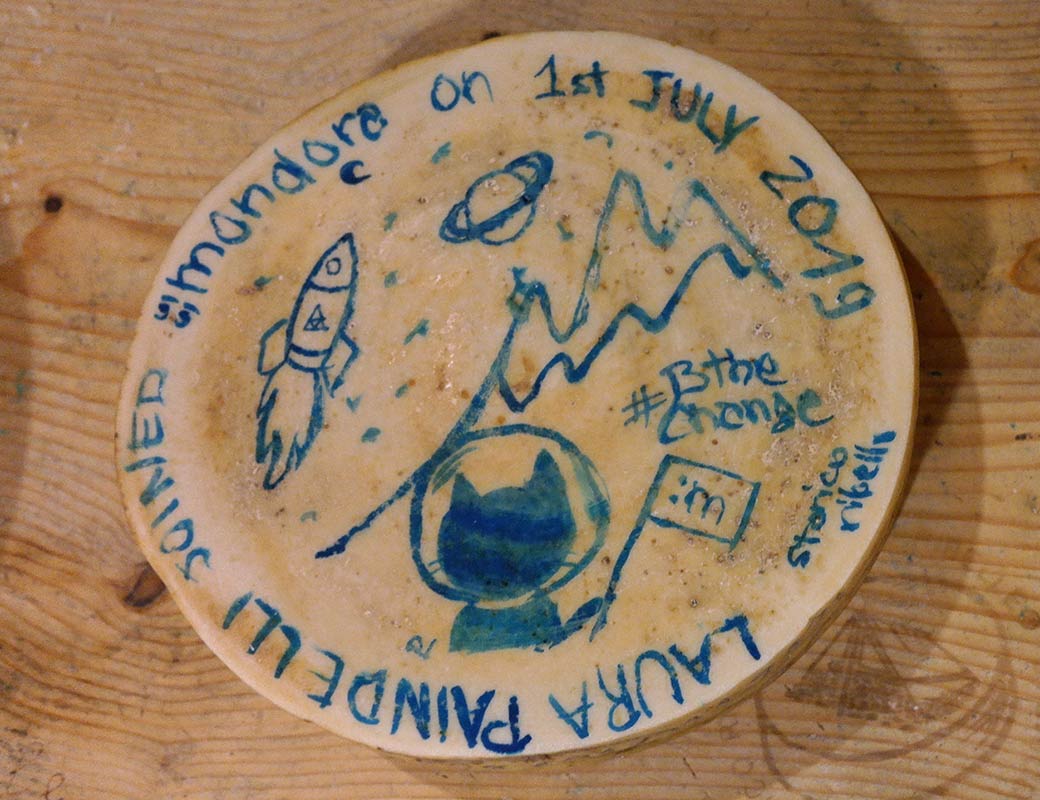 LAURA PAINDELLI JOINED :mondora on 1st JULY 2019
#Bthe
change
:m
storico
ribelle